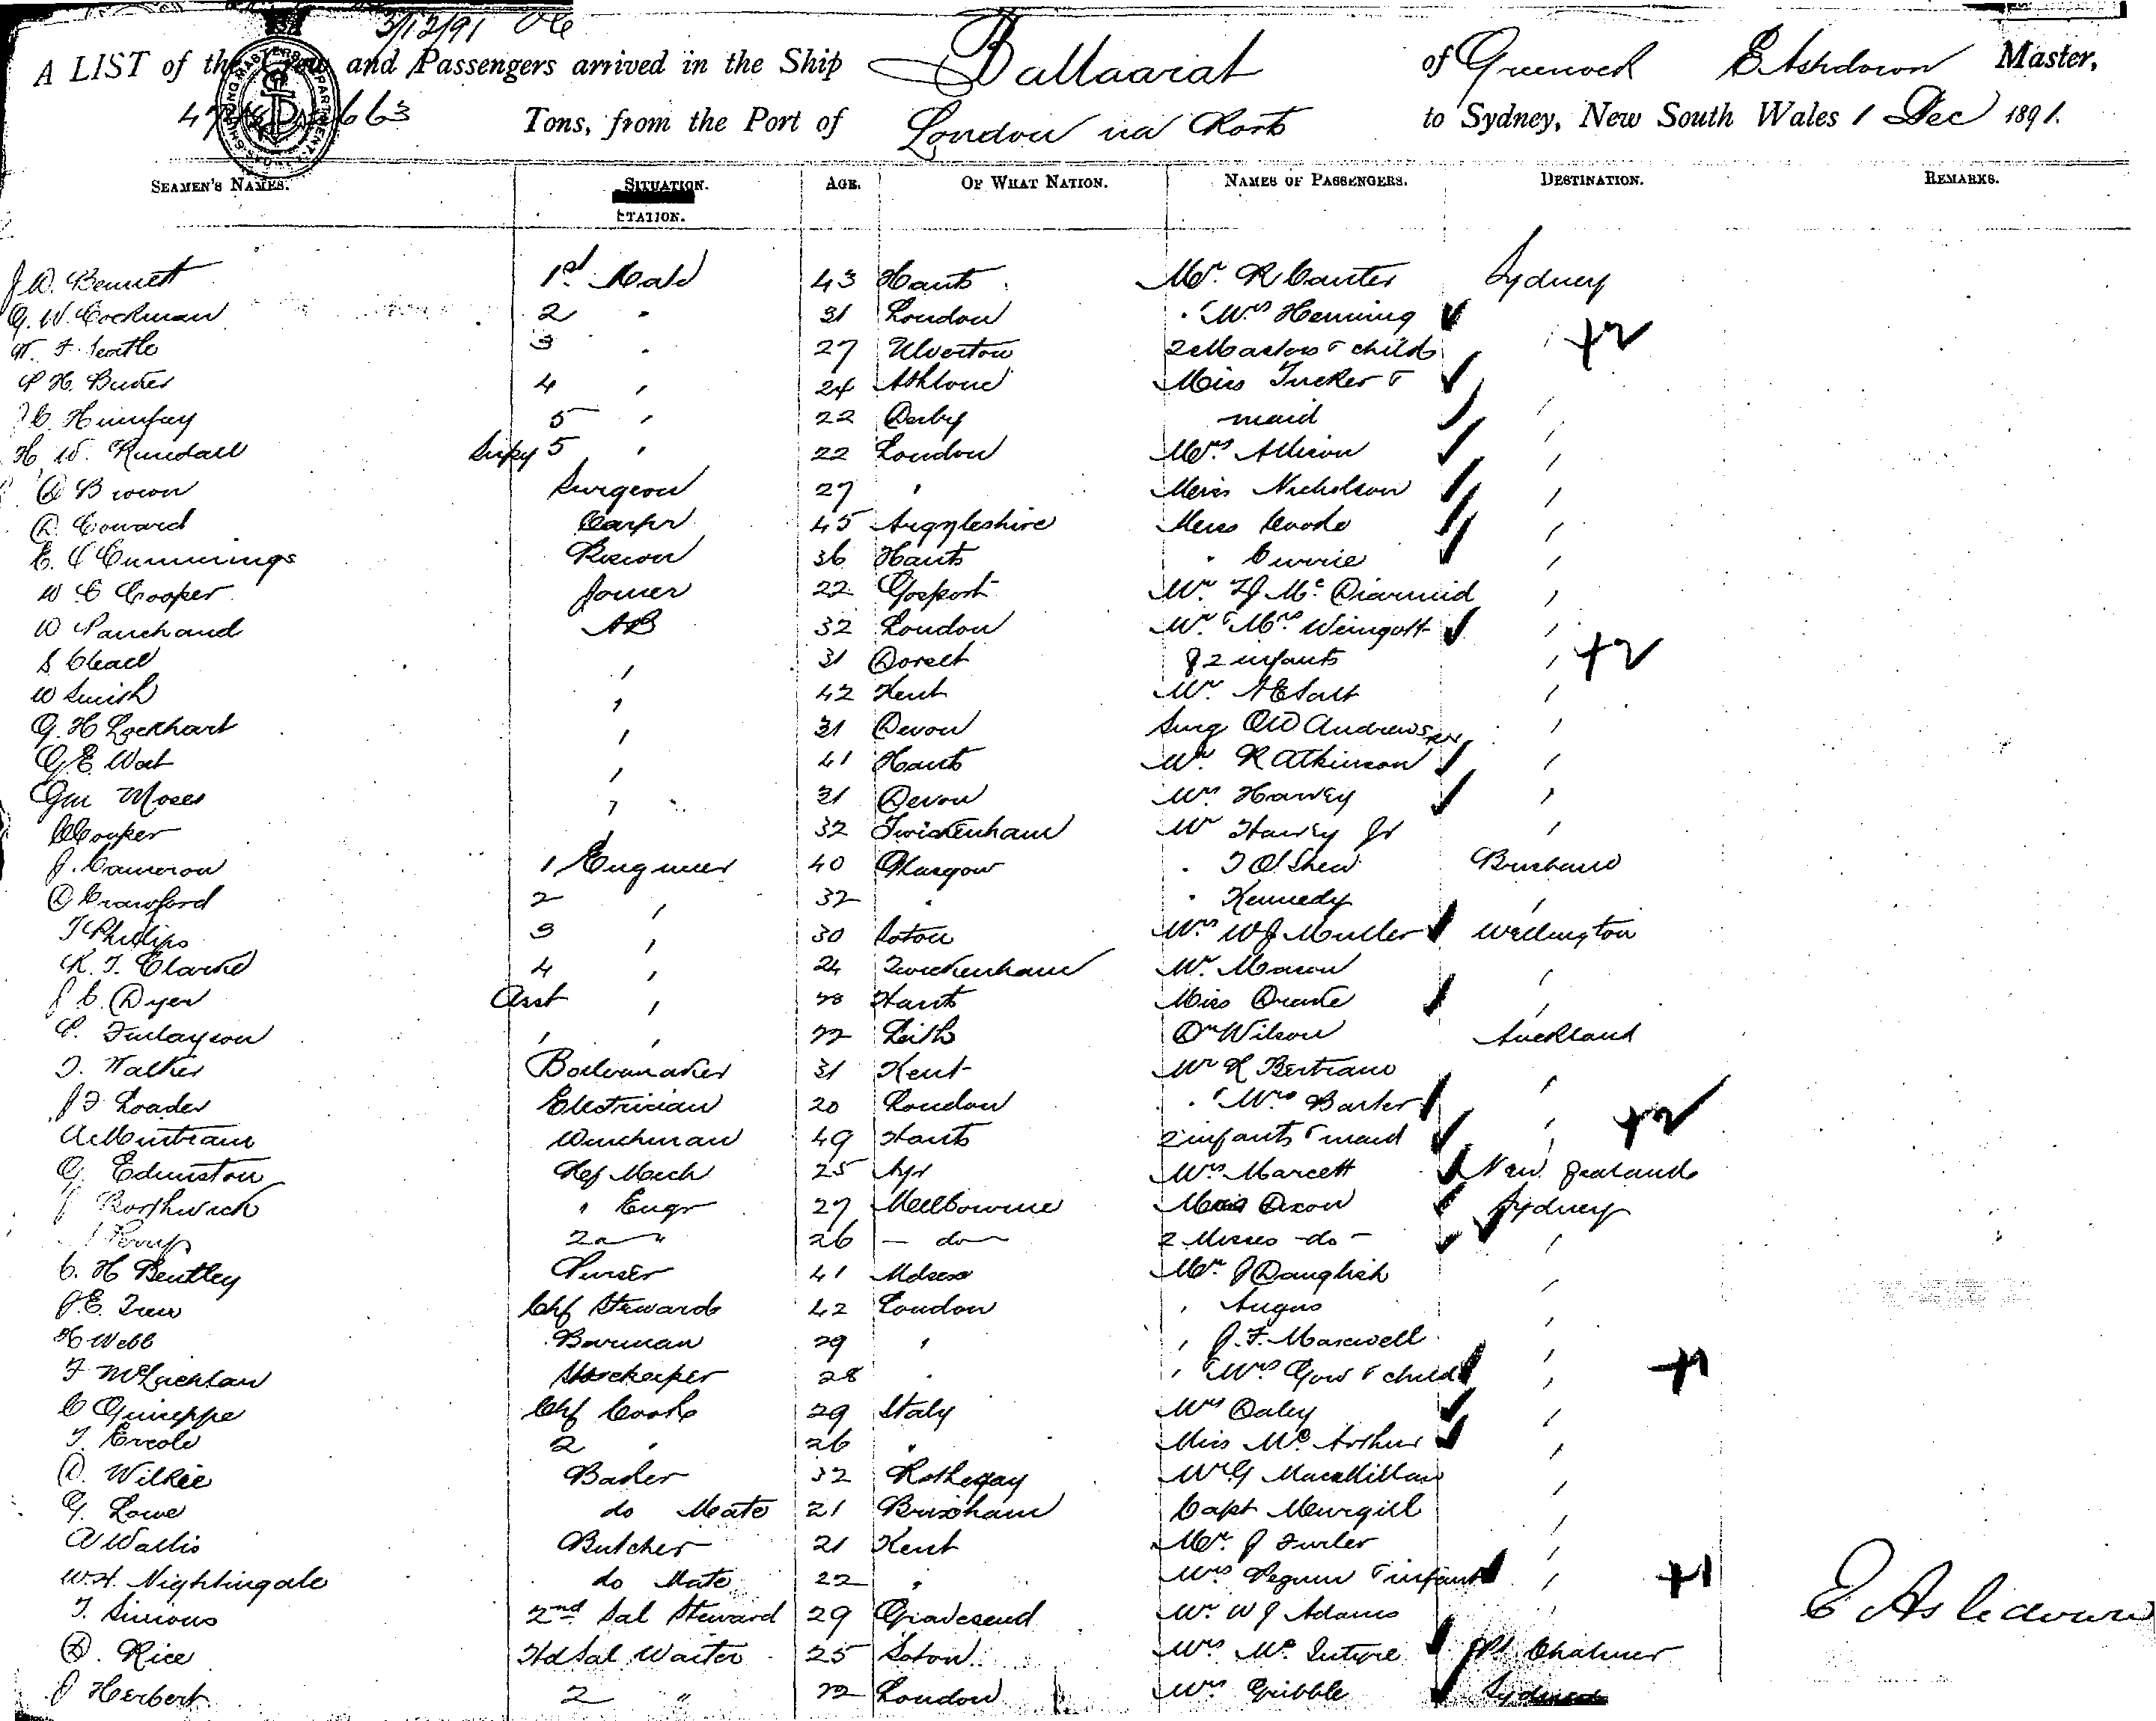 3/12/91
A LIST of the Crew and Passengers arrived in the Ship Ballaarat of Greenock E Ashdown Master,
Tons, from the Port of London via Ports to Sydney, New South Wales 1 Dec 1891.
SEAMEN'S NAMES. SITUATION. AGE. OF WHAT NATION. NAMES OF PASSENGERS. DESTINATION. REMARKS.
STATION.
J W. Bennett 1st Mate 43 Hants Mr R Canter Sydney
G. W. Cockman 2 " 31 London " & Mrs Henning
W. F. Seatle 3 " 27 Ulverton 2 Masters & child +2
P H. Buder 4 " 24 Athlone Miss Tucker &
C. Humfay 5 " 22 Derby maid
H. W. Rundall Supy 5 " 22 London Mrs Allison
D Brown Surgeon 27 " Misses Nicholson
D. Coward Carpr 45 Argyleshire Misses Coode
E. C Cummings Bosun 36 Hants " Currie
W C Cooper Joiner 22 Gosport Mr F J McDiarmid
W Panchaud AB 32 London Mr & Mrs Weingott
S Cleall " 31 Dorset & 2 infants +2
W Smith " 42 Kent Mr A E Salt
G. H Lockhart " 31 Devon Surg O W Andrews RN
G E. Wat " 41 Hants Mr R Atkinson
Geo Moses " 31 Devon Mrs Harvey
C Cooper 32 Twickenham Mr Harvey Jr
J. Cameron 1 Engineer 40 Glasgow " T O'Shea Brisbane
D Crawford 2 " 32 " " Kennedy "
T Phillips 3 " 30 Soton Mrs W J Muller Wellington
R. T. Clarke 4 " 24 Twickenham Mr Mason "
J C. Dyer Asst " 28 Hants Miss Drake "
P. Finlayson " " 22 Leith Dr Wilson Auckland
T. Walker Boilermaker 31 Kent Mr R Bertram "
J F Loader Electrician 20 London " & Mrs Barter "
A Mintram Winchman 49 Hants 2 infants & maid " +2
G Edmiston Ref Mech 25 Ayr Mrs Marcett New Zealand
J Borthwick " Engr 27 Melbourne Mrs Dixon Sydney
Perry 2nd " 26 - do - 2 Misses - do - "
C. H Bentley Purser 41 Mr J Danglish "
J. E. Trew Chf Steward 42 London " Angus "
H Webb Barman 29 " " J. F. Maxwell "
F McLachlan Storekeeper 28 " " & Mrs Gow & child " +1
C Guiseppe Chf Cook 29 Italy Mrs Daley "
F. Ercole 2 " 26 " Miss McArthur "
D. Wilkie Baker 32 Rothesay Mr G MacMillan "
G. Lowe do Mate 21 Brixham Capt Meurgill "
A Wallis Butcher 21 Kent Mr J Furler "
W. H. Nightingale do Mate 22 " Mrs Pegum & infant " +1
T. Simons 2nd Sal Steward 29 Gravesend Mr W J Adams "
D. Rice Hd Sal Waiter 25 Soton Mrs McIntyre Pt Chalmer
J Herbert 2 " 22 London Mrs Gribble Sydney
E Ashdown